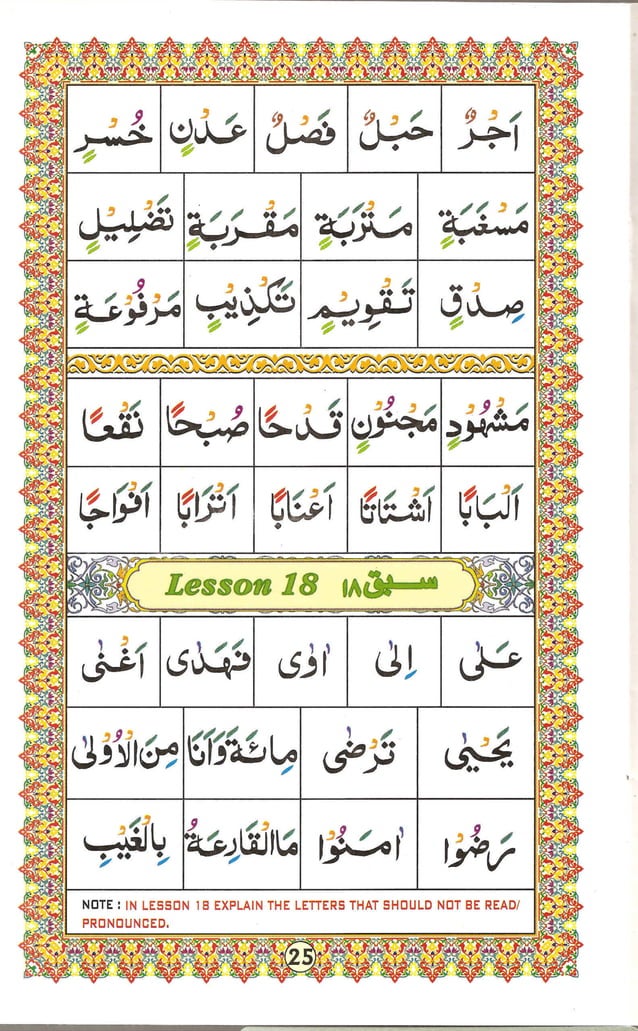 اَجْرٌ حَبْلٌ فَصْلٌ عَدْنٍ خُسْرٍ
مَسْغَبَةٍ مَتْرَبَةٍ مَقْرَبَةٍ تَضْلِيْلٍ
صِدْقٍ تَقْوِيْمٍ تَكْذِيْبٍ مَرْفُوْعَةٍ
مَشْهُوْدٍ مَجْنُوْنٍ قَدْحًا صُبْحًا نَقْعًا
اَلْبَابًا اَشْتَاتًا اَعْنَابًا اَتْرَابًا اَفْوَاجًا
Lesson 18 سبق ۱۸
عَلٰى اِلٰى اٰوٰى فَهَدٰى اَغْنٰى
يَحْيٰى تَرْضٰى مِائَةَ وَاَنَا مِنَ الْاُوْلٰى
رَضُوْا اٰمَنُوْا مَا الْقَارِعَةُ بِالْغَيْبِ
NOTE : IN LESSON 18 EXPLAIN THE LETTERS THAT SHOULD NOT BE READ/
PRONOUNCED.
25